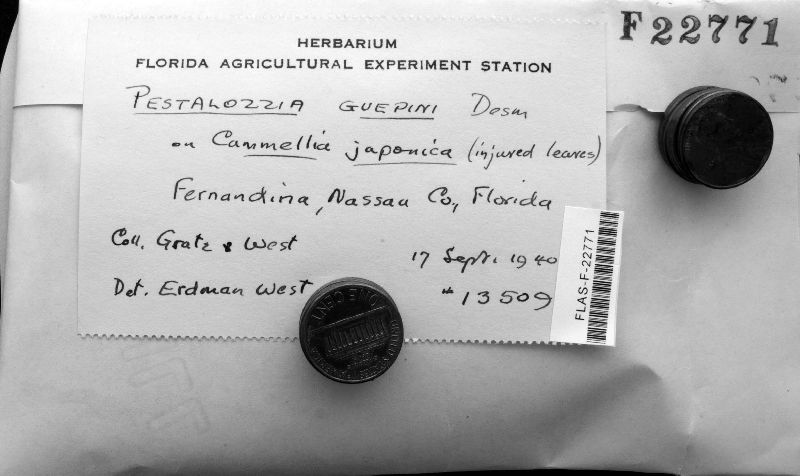 F22771
HERBARIUM
FLORIDA AGRICULTURAL EXPERIMENT STATION
PESTALOZZIA GUEPINI Desm
on Cammellia japonica (injured leaves)
Fernandina, Nassau Co., Florida
Coll. Gratz & West
17 Sept. 1940
Det. Erdman West
#13509
FLAS-F-22771
ONE CENT